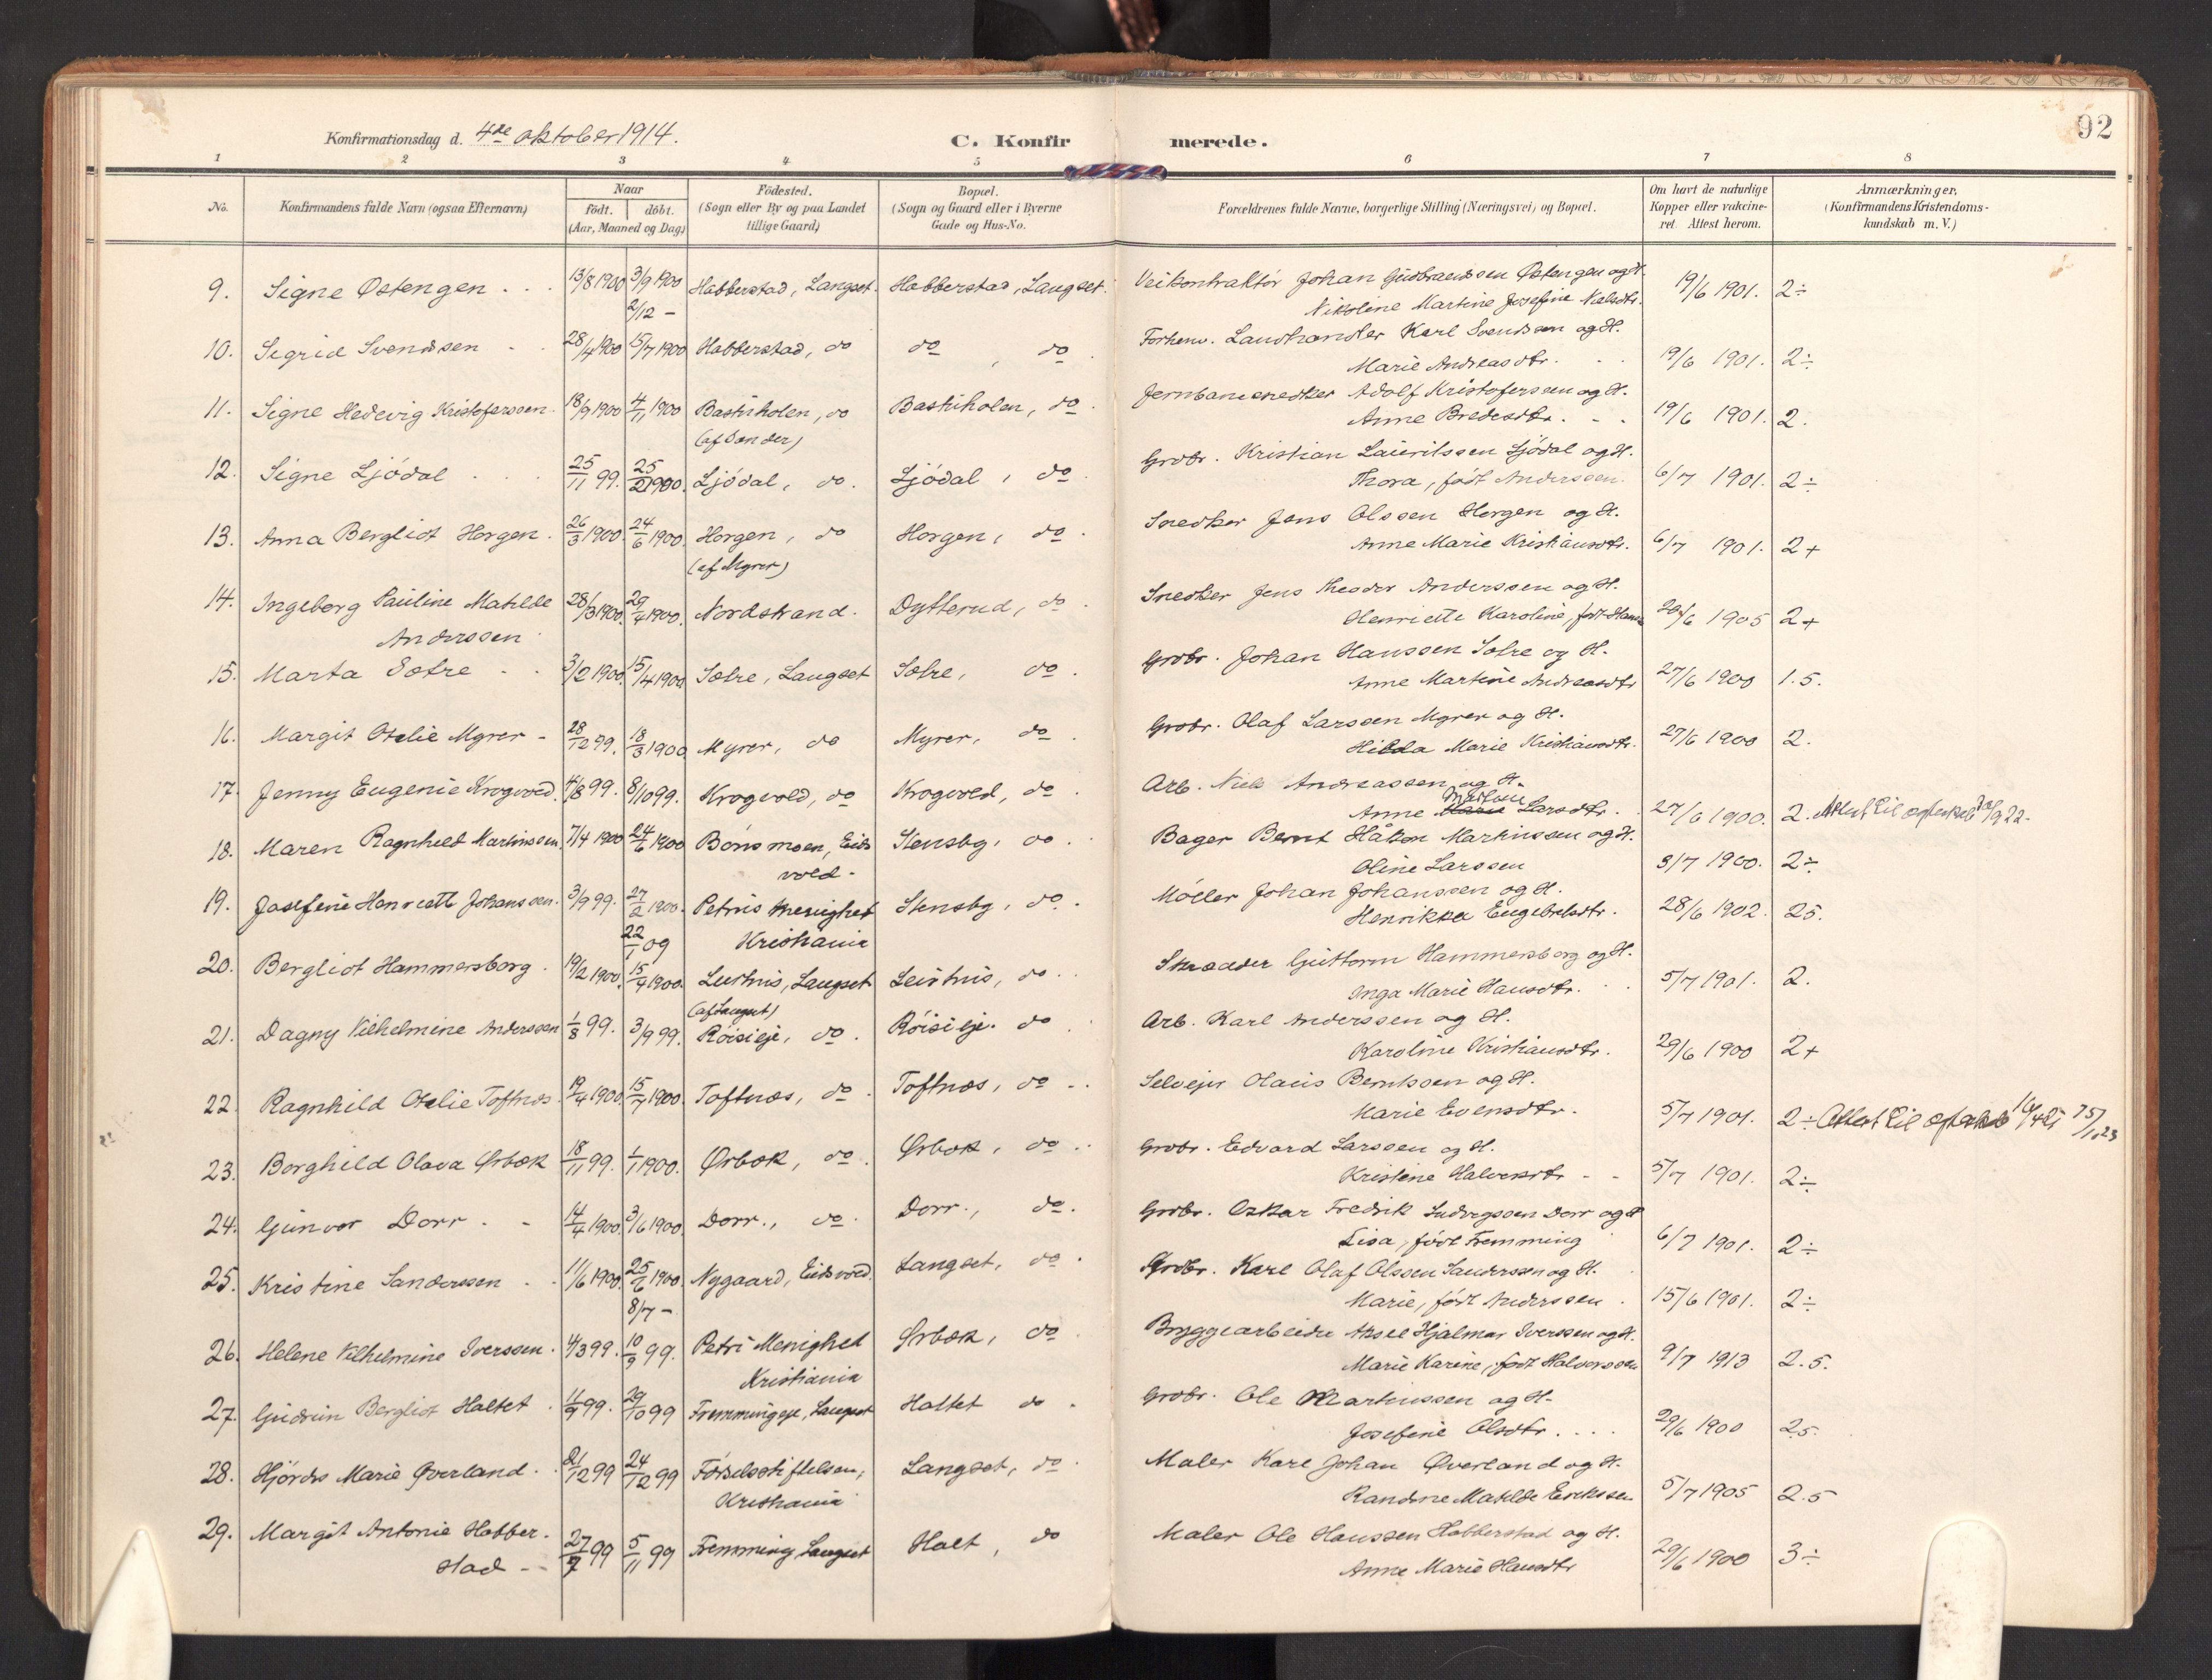 92
Konfirmationsdag d. 4de oktober 1914.
C. Konfirmerede.
1 2 3 4 5 6 7 8
No.
Konfirmandens fulde Navn (ogsaa Efternavn)
Naar
födt. döbt.
(Aar, Maaned og Dag)
Födested.
(Sogn eller By og paa Landet
tillige Gaard)
Bopæl.
(Sogn og Gaard eller i Byerne
Gade og Hus-No.
Forældrenes fulde Navne, borgerlige Stilling (Næringsvei) og Bopæl.
Om havt de naturlige
Kopper eller vakcine-
ret. Attest herom.
Anmærkninger,
(Konfirmandens Kristendoms-
kundskab m. V.)
9. Signe Østengen . . . 13/8 1900 3/9 1900 Habberstad, Langset. Habberstad, Langset. Veikontraktör Johan Gudbrandssen Østengen og H. 19/6 1901. 2÷
2/12 – Nikoline Martine Josefine Nalsdtr.
10. Sigrid Svendsen . . 28/4 1900 15/7 1900 Habberstad, do do , do . Forhenv. Landhandler Karl Svendsen og H.
Marie Andreasdtr. . . 19/6 1901. 2÷
11. Signe Hedevig Kristoferssen. 18/9 1900 4/11 1900 Bastuholen, do Bastuholen, do . Jernbanesnedker Adolf Kristoferssen og H.
(af Sander) Anne Bredesdtr. . . 19/6 1901. 2.
12. Signe Ljödal . . . 25/11 99. 25/2 1900. Ljödal, do. Ljödal, do . Grdbr. Kristian Lauritssen Ljödal og H.
Thora, födt Anderssen. 6/7 1901. 2÷
13. Anna Bergliot Horgen . 26/3 1900. 24/6 1900. Horgen, do Horgen, do . Snedker Jens Olssen Horgen og H.
(af Myrer) Anne Marie Kristiansdtr. 6/7 1901. 2+
14. Ingeborg Pauline Matilde 28/3 1900. 29/4 1900. Nordstrand. Dytterud, do . Snedker Jens Theodor Anderssen og H.
Anderssen Henriette Karoline, födt 29/6 1905 2+
15. Marta Sætre . . 3/2 1900. 15/4 1900 Sætre, Langset Sætre, do . Grdbr. Johan Hanssen Sætre og H.
Anne Martine Andreasdtr 27/6 1900 1.5.
16. Margit Otelie Myrer – 28/12 99. 18/3 1900 Myrer, do Myrer, do . Grdbr. Olaf Larssen Myrer og H.
Hilda Marie Kristiansdtr. 27/6 1900 2.
17. Jenny Eugenie Krogvold. 4/8 99. 8/10 99. Krogvold, do Krogvold, do . Arb. Niels Andreassen og H.
Anne Marie Larsdtr. . 27/6 1900. 2. Attest til 9 22.
18. Maren Ragnhild Martinssen. 7/4 1900 24/6 1900 Bönsmoen, Eids Stensby, do . Bager Bernt Håkon Martinssen og H.
vold. Oline Larssen 3/7 1900. 2÷
19. Josefine Henriette Johanssen. 3/9 99. 27/2 1900. Petrus Menighet Stensby, do . Möller Johan Johanssen og H.
Kristiania Henrikka Engebretsdtr. 28/6 1902. 25.
22/1 og
20. Bergliot Hammersborg . 19/2 1900. 15/4 1900. Lustnis, Langset Leirtnis, do . . Skrædder Guttorm Hammersborg og H.
(af Langset) Inga Marie Hansdtr. . . 5/7 1901. 2.
21. Dagny Vilhelmine Anderssen 1/8 99. 3/9 99. Röisieje, do . Röisieje. do Arb. Karl Anderssen og H.
Karoline Kristiansdtr. 29/6 1900 2+
22. Ragnhild Otelie Toftnæs. 19/4 1900. 15/7 1900. Toftnæs, do . Toftnæs, do – . Selveier Olaus Berntssen og H.
Marie Evensdtr. 5/7 1901. 2÷ Attest til
23. Borghild Olava Ørbæk 18/11 99. 1/1 1900. Ørbæk, do . Ørbæk, do . . Grdbr. Edvard Larssen og H.
Kristine Halvorsdtr – – 5/7 1901. 2÷
24. Gunvor Dorr . – 14/4 1900. 3/6 1900. Dorr., do . Dorr., do. Grdbr. Oskar Fredrik Ludvigssen Dorr og H
Lisa, födt Fremming 6/7 1901. 2÷
25. Kristine Sanderssen . . 11/6 1900. 25/6 1900. Nygaard, Eidsvold. Langset, do . Grdbr. Karl Olaf Olssen Sanderssen og H.
8/7 – Marie, födt Anderssen . 15/6 1901. 2÷
26. Helene Vilhelmine Iverssen . 4/3 99. 10/9 99. Petri Menighet Ørbæk, do Bryggearbeider Aksel Hjalmar Iverssen og H.
Kristiania Marie Karine, födt Halvorssen 9/7 1913 2.5.
27. Gudrun Bergliot Haltet . 11/9 99. 29/10 99 Fremmingeje, Langset Haltet do . Grdbr. Ole Martinssen og H.
Josefine Olsdtr. . . . 29/6 1900 2.5.
28. Hjördis Marie Øverland . . 21/12 99 24/12 99 Födselsstiftelsen, Langset, do . Maler Karl Johan Øverland og H.
Kristiania Randine Matilde Erikssen 5/7 1905 2.5
29. Margit Antonie Habber- 27/9 99 5/11 99 Fremming, Langset Halt, do Maler Ole Hanssen Habberstad og H.
stad – – Anne Marie Hansdtr 29/6 1900 3÷